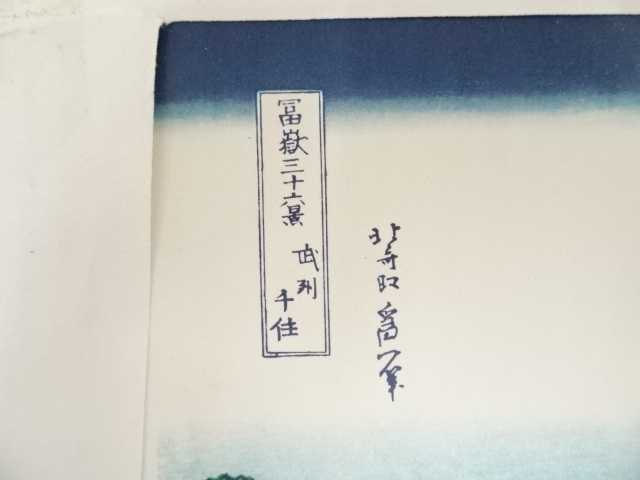 冨嶽三十六景 武州
千住
北斎改爲一筆